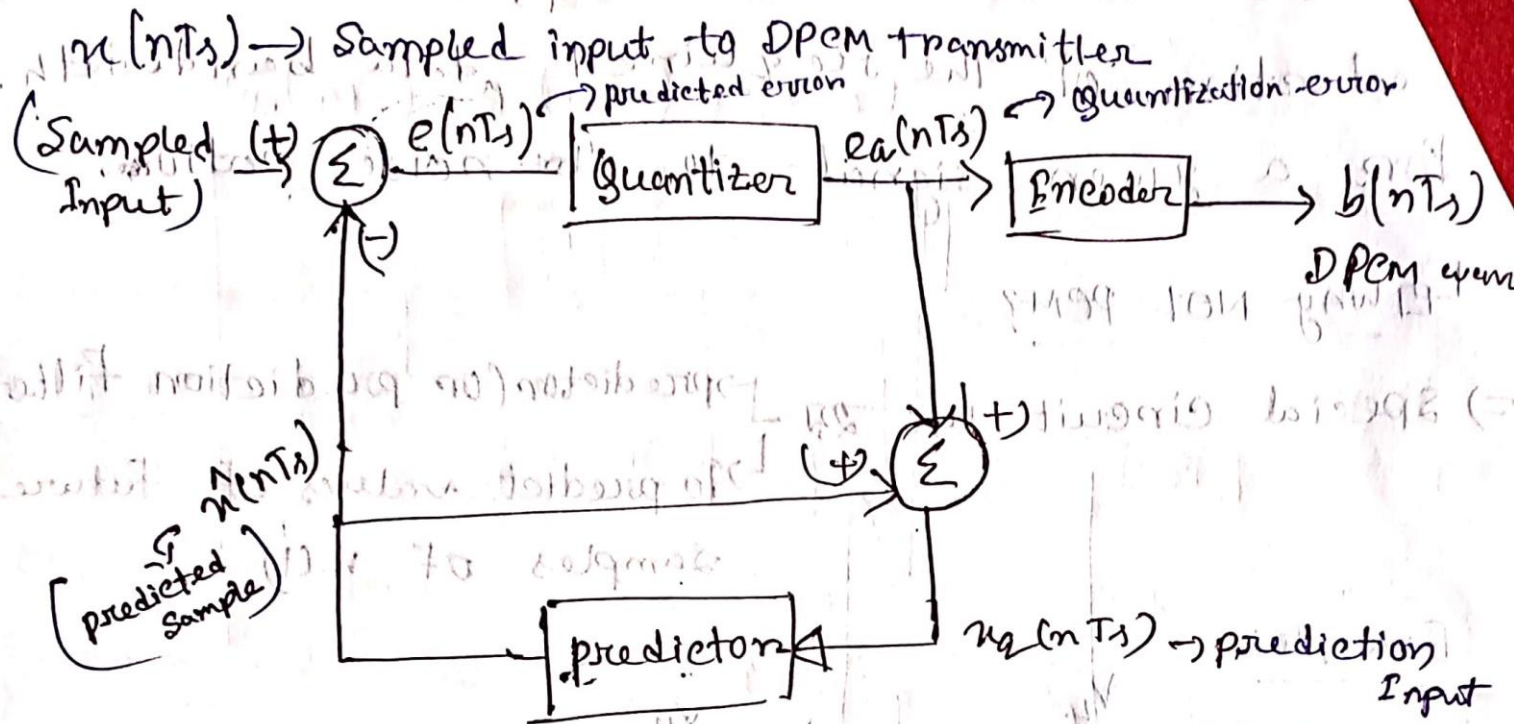 x(nTs) → Sampled input to DPCM transmitter
(Sampled Input) (+) Σ e(nTs) → predicted error
Quantizer
eq(nTs) → Quantization error
Encoder
b(nTs)
DPCM
(-)
(+)
(+) Σ
x̂(nTs)
(predicted sample)
predictor
xq(nTs) → prediction
Input